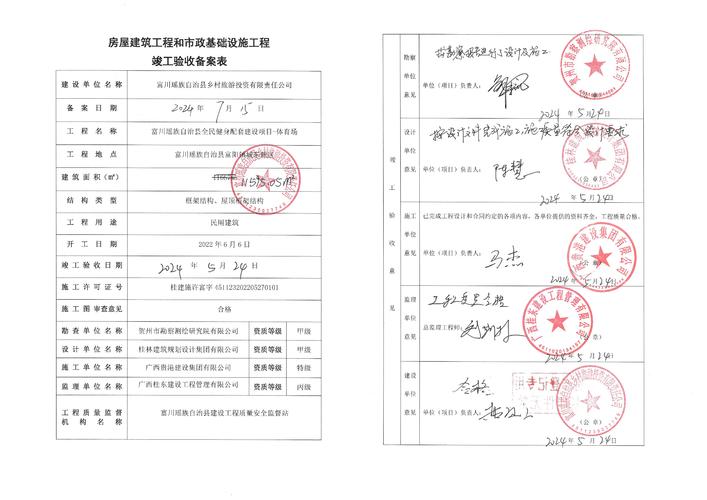 房屋建筑工程和市政基础设施工程
竣工验收备案表
建设单位名称 富川瑶族自治县乡村旅游投资有限责任公司
备案日期 2024年7月15日
工程名称 富川瑶族自治县全民健身配套建设项目-体育场
工程地点 富川瑶族自治县富阳镇城东新区
建筑面积(㎡) 11515.05m²
结构类型 框架结构、屋顶框架结构
工程用途 民用建筑
开工日期 2022年6月6日
竣工验收日期 2024年5月24日
施工许可证号
施工图审查意见 合格
勘查单位名称 贺州市勘察测绘研究院有限公司 资质等级 甲级
设计单位名称 桂林建筑规划设计集团有限公司 资质等级 甲级
施工单位名称 广西贵港建设集团有限公司 资质等级 特级
监理单位名称 广西桂东建设工程管理有限公司 资质等级 丙级
工程质量监督
机构名称 富川瑶族自治县建设工程质量安全监督站
竣工验收意见
勘察
单位
意见
单位(项目)负责人:
2024年5月24日
设计
单位
意见
按设计文件完成施工,施工质量符合设计要求
单位(项目)负责人:
(公章)
2024年5月24日
施工
单位
意见
已完成工程设计和合同约定的各项内容,各单位提供的资料齐全,工程质量合格。
单位(项目)负责人: 马杰
广西贵港建设集团有限公司
2024年5月24日
监理
单位
意见
总监理工程师:
广西桂东建设工程管理有限公司
2024年5月24日
建设
单位
意见
合格
单位(项目)负责人:
(公章)
2024年5月24日